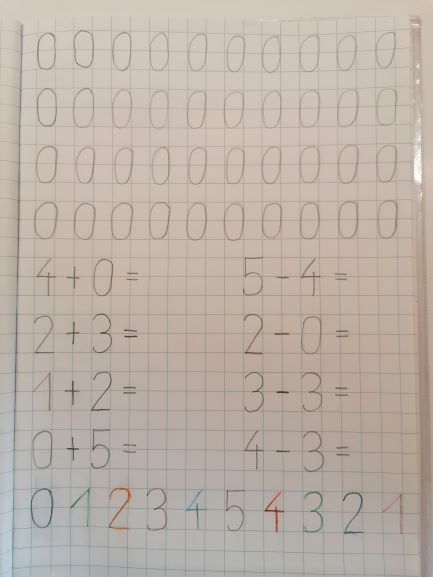 0 0 0 0 0 0 0 0 0 0
0 0 0 0 0 0 0 0 0 0
0 0 0 0 0 0 0 0 0 0
0 0 0 0 0 0 0 0 0 0
4 + 0 = 5 - 4 =
2 + 3 = 2 - 0 =
1 + 2 = 3 - 3 =
0 + 5 = 4 - 3 =
0 1 2 3 4 5 4 3 2 1